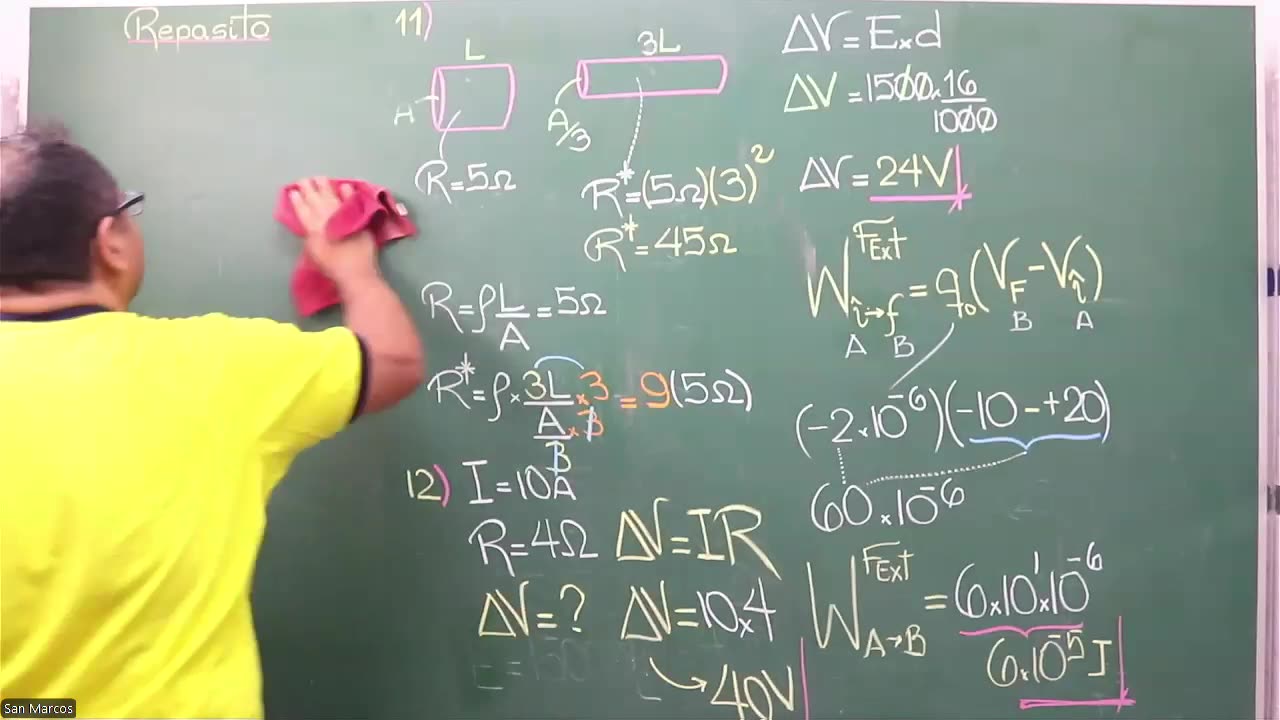 Repasito
11)
L
A
R=5Ω
3L
A/3
R*=(5Ω)(3)²
R*=45Ω
R=ρL/A=5Ω
R*=ρ×3L/(A/3)×3/3=9(5Ω)
12) I=10A
R=4Ω
ΔV=?
ΔV=IR
ΔV=10×4
40V
ΔV=E×d
ΔV=1500×16/1000
ΔV=24V
W^FExt i→f=q₀(V_F-V_i)
A B B A
(-2×10⁻⁶)(-10-+20)
60×10⁻⁶
W^FExt A→B=6×10¹×10⁻⁶
6×10⁻⁵J
San Marcos